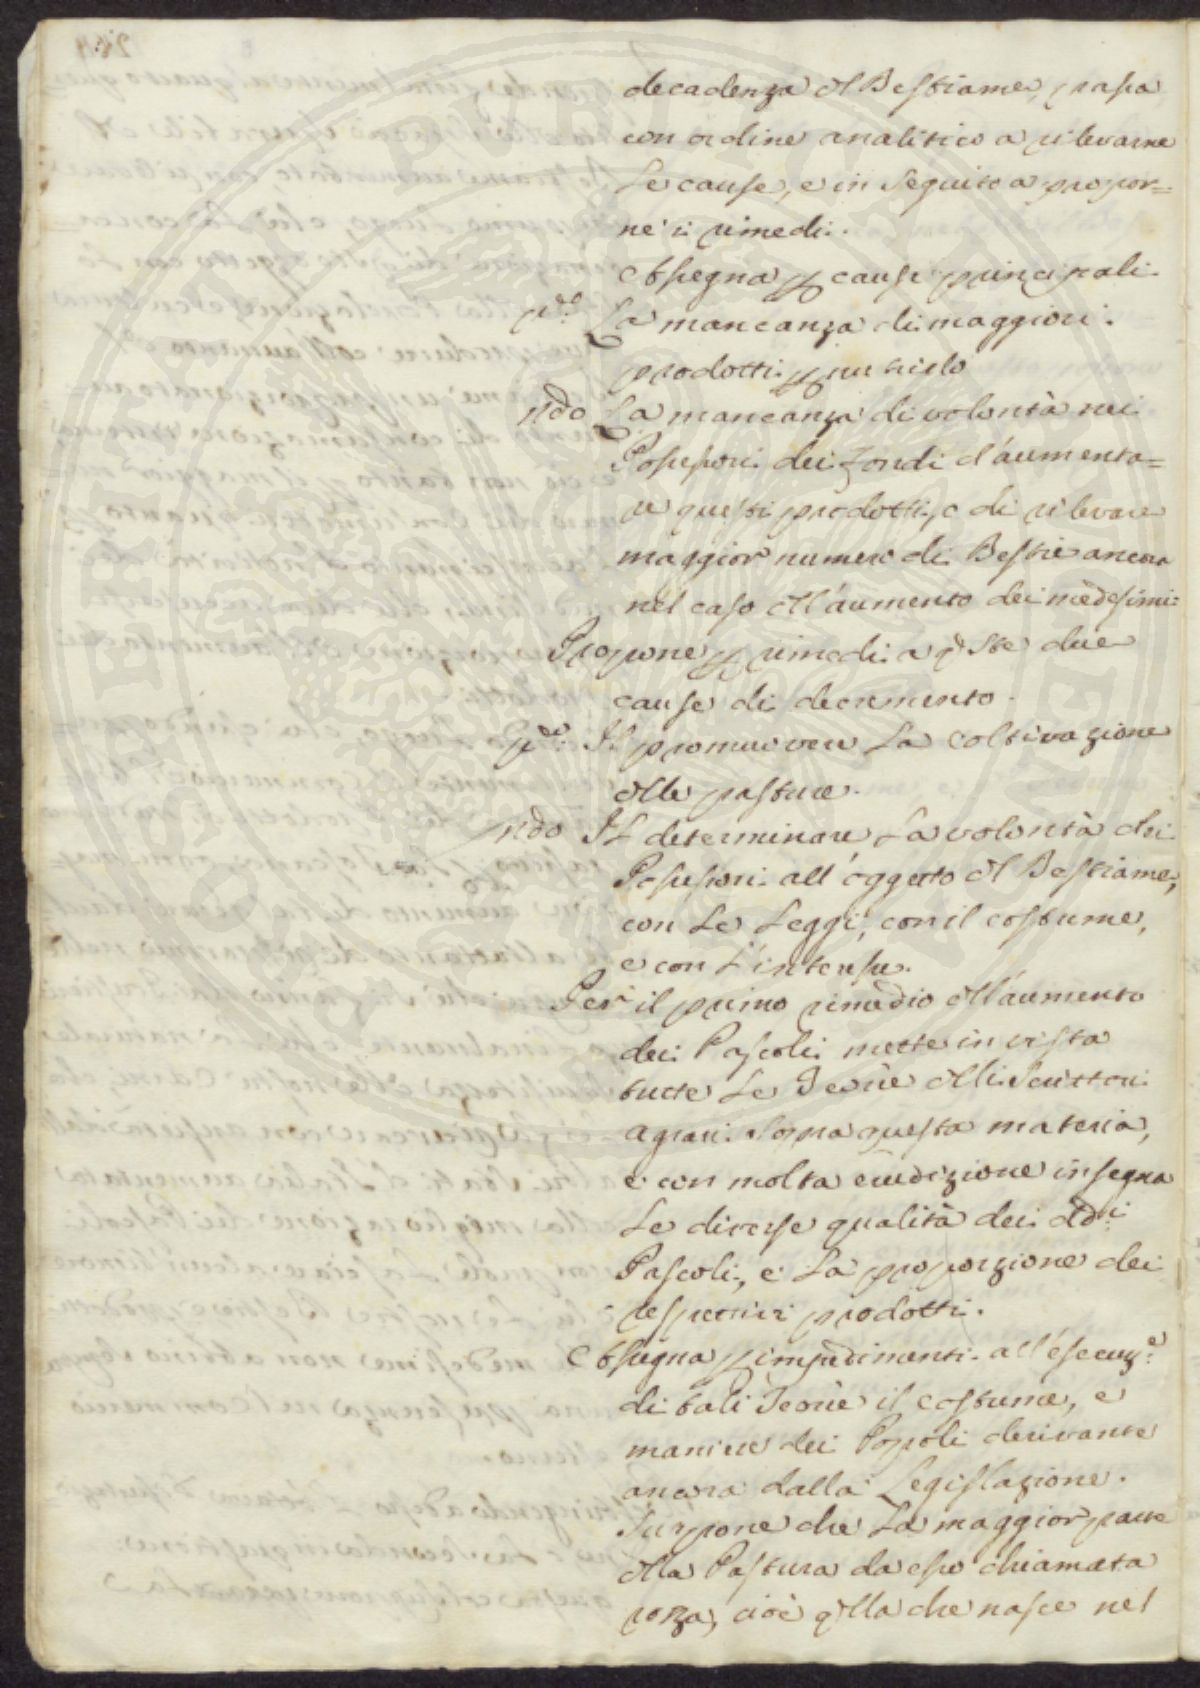 decadenza del Bestiame, passa
con ordine analitico a rilevarne
Le cause, e in Seguito a propor=
ne i rimedi.
Assegna p cause principali
p.º La mancanza di maggiori
prodotti p nutrirlo
ndo La mancanza di volontà nei
Possessori dei Fondi d'aumenta=
re questi prodotti, e di rilevare
maggior numero di Bestie ancora
nel caso dell'aumento dei medesimi:
Propone p rimedi a q̃ste due
cause di decremento.
p.º: Il promuovere La coltivazione
delle pasture.
ndo Il determinare La volontà dei
Possessori all'oggetto del Bestiame,
con Le Leggi, con il costume,
e con L'interesse.
Per il primo rimedio dell'aumento
dei Pascoli mette in vista
tutte Le Teorie delli Scrittori
agrari sopra questa materia,
e con molta erudizione insegna
Le diverse qualità dei dd.i
Pascoli, e La proporzione dei
respettivi prodotti.
Assegna p impedimenti all'esecuz.e
di tali Teorie il costume, e
maniere dei Popoli derivante
ancora dalla Legislazione.
Suppone che La maggior parte
della Pastura da esso chiamata
rozza, cioè q̃lla che nasce nel